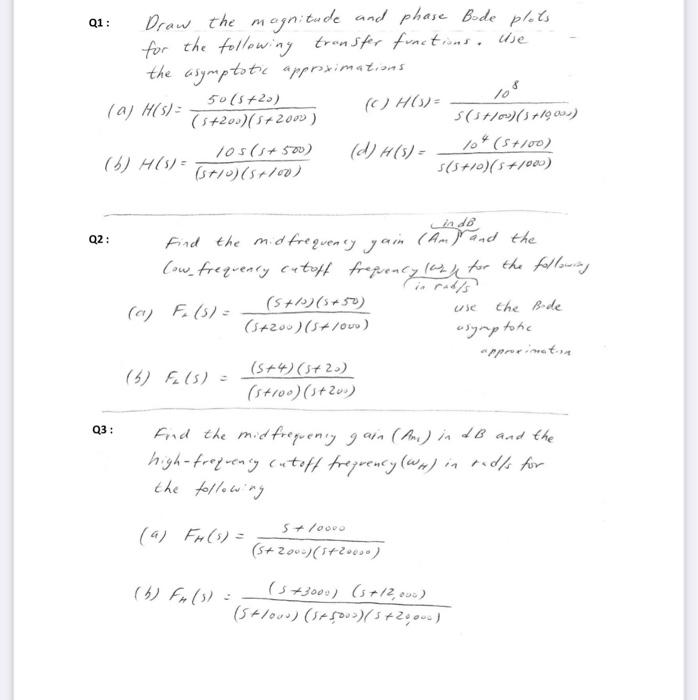 Q1: Draw the magnitude and phase Bode plots
for the following transfer functions. Use
the asymptotic approximations
(a) H(s) = 50(s+20) / (s+200)(s+2000)
(c) H(s) = 10^8 / s(s+100)(s+10,000)
(b) H(s) = 10s(s+500) / (s+10)(s+100)
(d) H(s) = 10^4 (s+100) / s(s+10)(s+1000)
in dB
Q2: Find the midfrequency gain (Am) and the
low-frequency cutoff frequency (ωL) for the following
in rad/s
(a) FL(s) = (s+10)(s+50) / (s+200)(s+1000)
use the Bode
asymptotic
approximation
(b) FL(s) = (s+4)(s+20) / (s+100)(s+200)
Q3: Find the midfrequency gain (Am) in dB and the
high-frequency cutoff frequency (ωH) in rad/s for
the following
(a) FH(s) = s+10000 / (s+2000)(s+20000)
(b) FH(s) = (s+3000) (s+12,000) / (s+1000)(s+5000)(s+20,000)